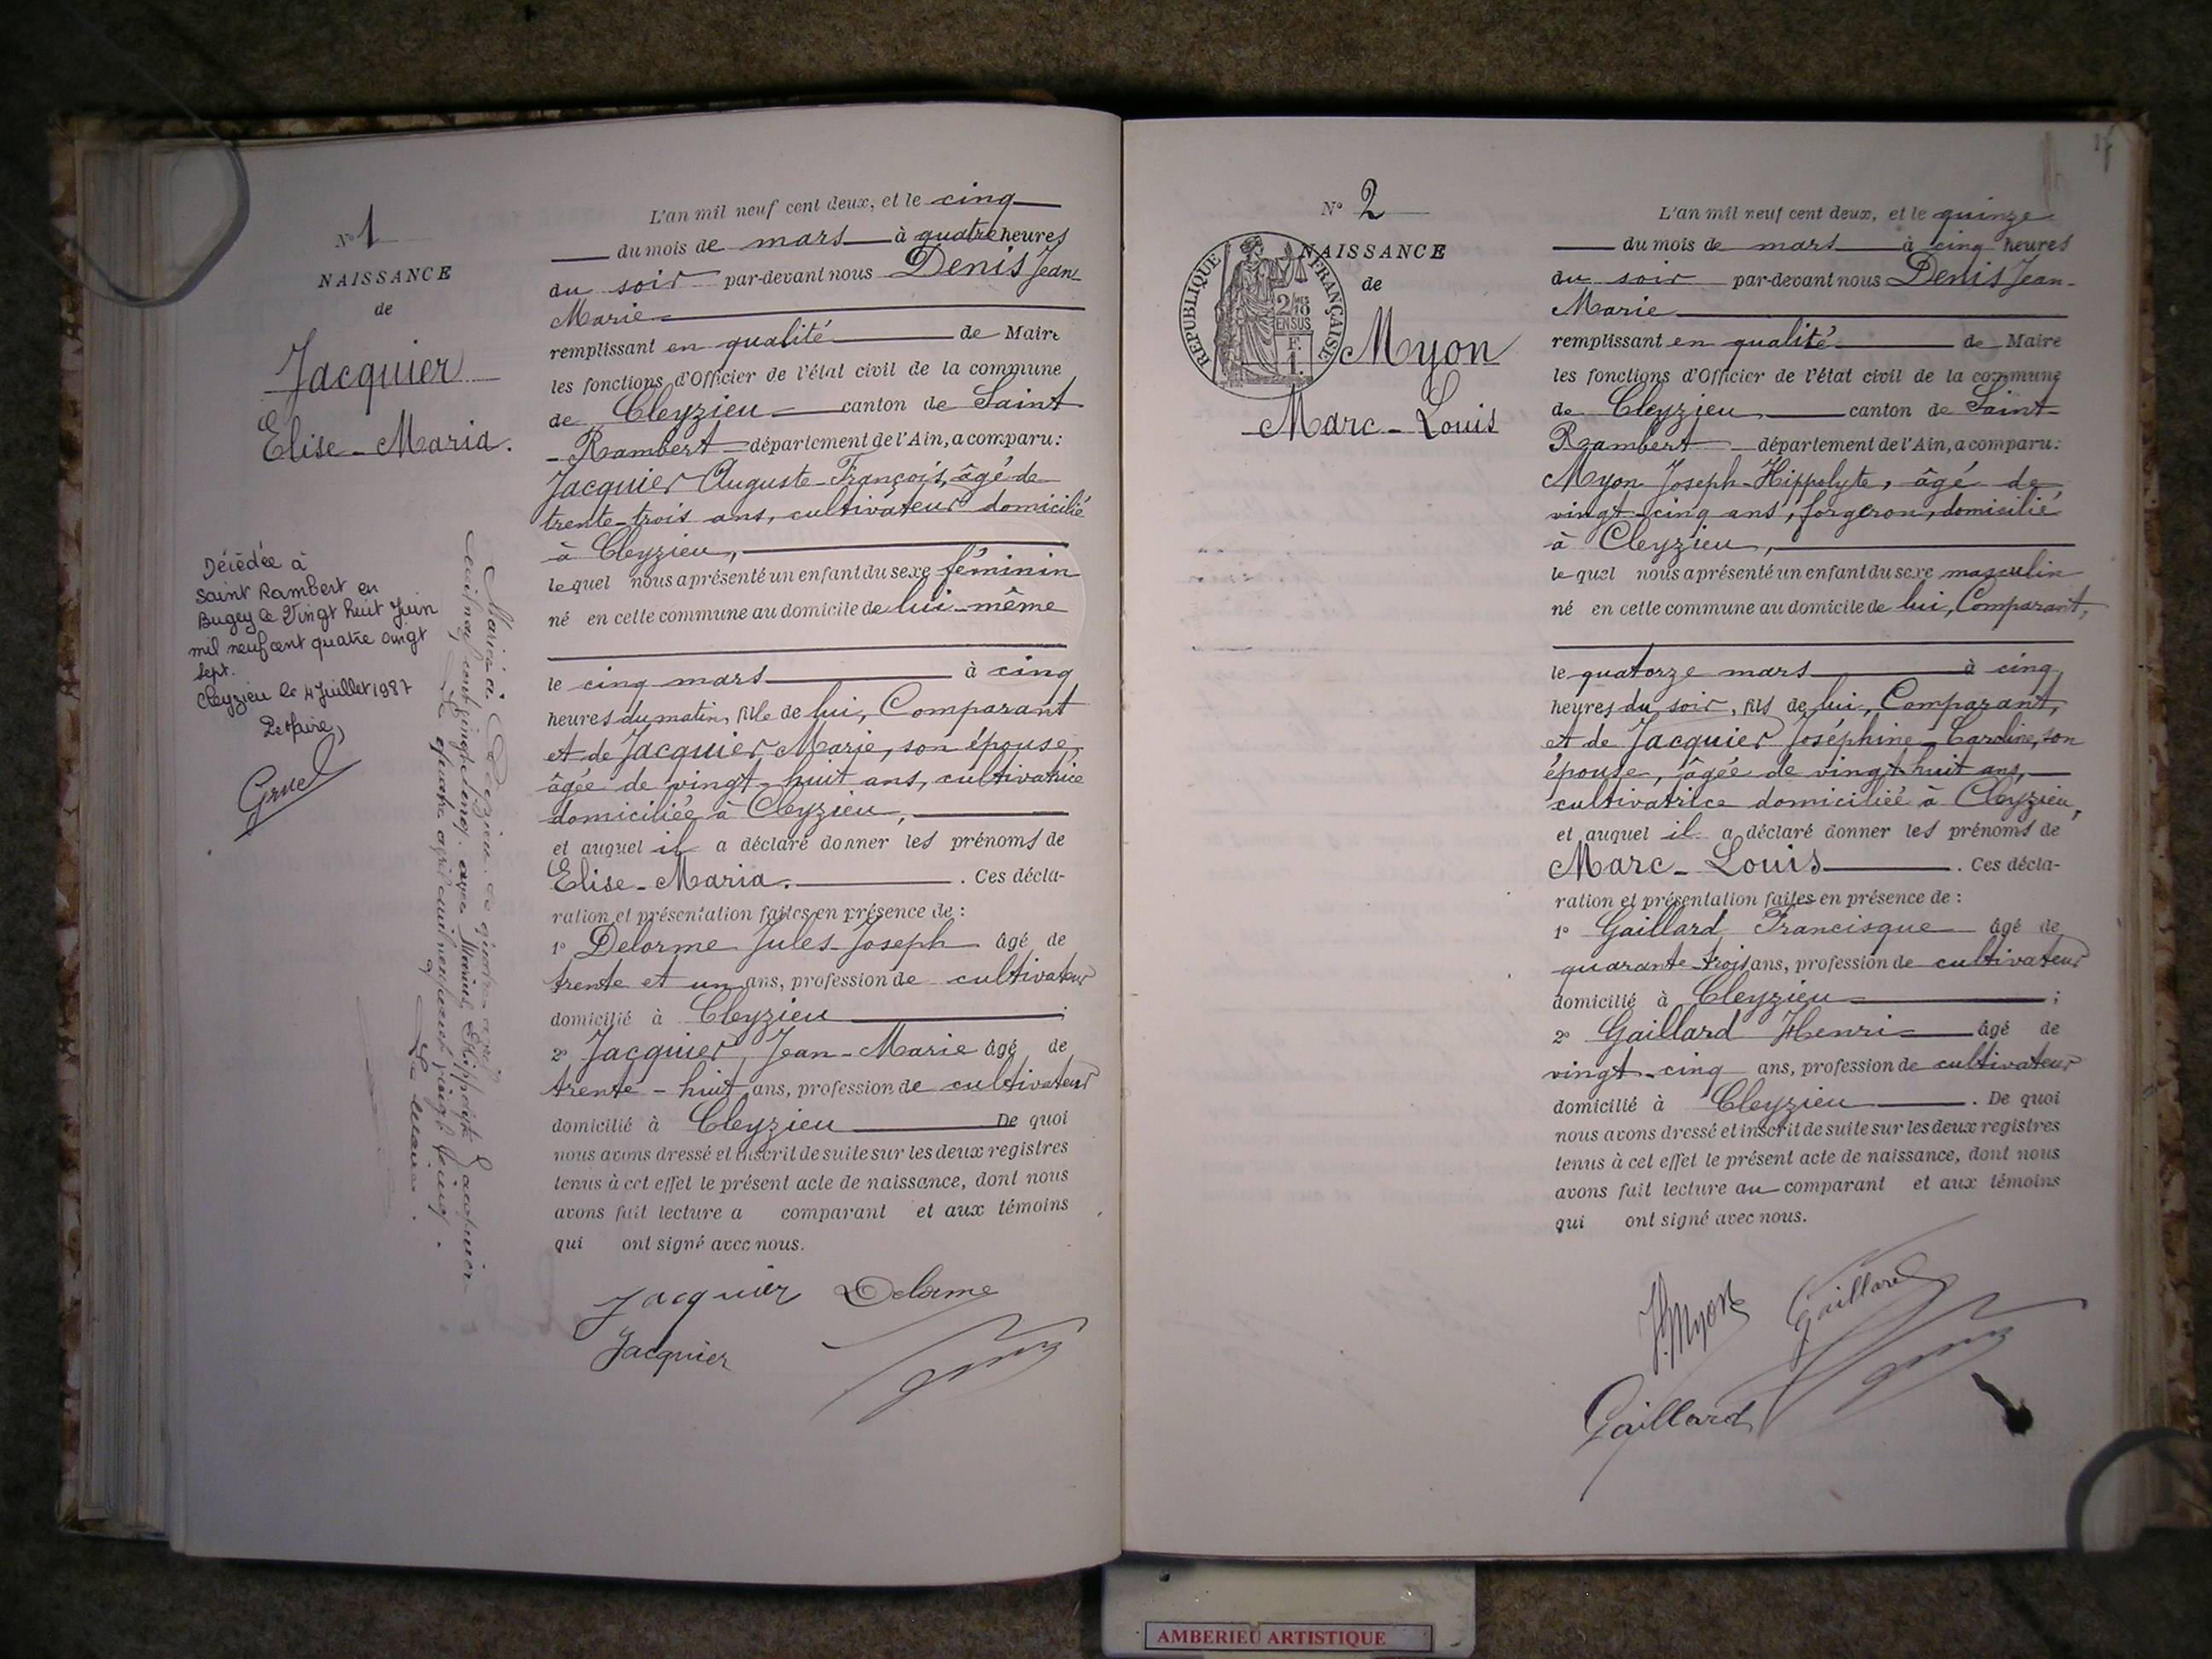 N° 1
NAISSANCE
de
Jacquier
Elise - Maria.
Décédée à
Saint Rambert en
Bugey le Vingt huit Juin
mil neuf cent quatre vingt
sept.
Cleyzieu le 4 Juillet 1987
Le Maire,
Gruel
Mariée à Cleyzieu, le avril
mil neuf cent vingt cinq avec Marius Hippolyte Jacquier
Le avril mil neuf cent vingt cinq.
Le Maire.
L'an mil neuf cent deux, et le cinq
du mois de mars à quatre heures
du soir par-devant nous Denis Jean
Marie
remplissant en qualité de Maire
les fonctions d'Officier de l'état civil de la commune
de Cleyzieu canton de Saint
- Rambert département de l'Ain, a comparu:
Jacquier Auguste-François, âgé de
trente-trois ans, cultivateur domicilié
à Cleyzieu,
lequel nous a présenté un enfant du sexe féminin
né en cette commune au domicile de lui-même
le cinq mars à cinq
heures du matin, fille de lui, Comparant
et de Jacquier Marie, son épouse,
âgée de vingt-huit ans, cultivatrice
domiciliée à Cleyzieu,
et auquel il a déclaré donner les prénoms de
Elise - Maria. . Ces décla-
ration et présentation faites en présence de :
1° Delorme Jules-Joseph âgé de
trente et un ans, profession de cultivateur
domicilié à Cleyzieu ;
2° Jacquier, Jean-Marie âgé de
trente - huit ans, profession de cultivateur
domicilié à Cleyzieu De quoi
nous avons dressé et inscrit de suite sur les deux registres
tenus à cet effet le présent acte de naissance, dont nous
avons fait lecture a comparant et aux témoins
qui ont signé avec nous.
Jacquier Delorme
Jacquier
N° 2
NAISSANCE
de
RÉPUBLIQUE FRANÇAISE
EN SUS
Myon
Marc - Louis
L'an mil neuf cent deux, et le quinze
du mois de mars à cinq heures
du soir par-devant nous Denis Jean-
Marie
remplissant en qualité de Maire
les fonctions d'Officier de l'état civil de la commune
de Cleyzieu canton de Saint-
Rambert département de l'Ain, a comparu:
Myon Joseph-Hippolyte, âgé de
vingt-cinq ans, forgeron, domicilié
à Cleyzieu,
lequel nous a présenté un enfant du sexe masculin
né en cette commune au domicile de lui, Comparant,
le quatorze mars à cinq
heures du soir, fils de lui, Comparant,
et de Jacquier Joséphine-Caroline, son
épouse, âgée de vingt-huit ans,
cultivatrice domiciliée à Cleyzieu,
et auquel il a déclaré donner les prénoms de
Marc - Louis . Ces décla-
ration et présentation faites en présence de :
1° Gaillard Francisque âgé de
quarante-trois ans, profession de cultivateur
domicilié à Cleyzieu ;
2° Gaillard Henri âgé de
vingt-cinq ans, profession de cultivateur
domicilié à Cleyzieu . De quoi
nous avons dressé et inscrit de suite sur les deux registres
tenus à cet effet le présent acte de naissance, dont nous
avons fait lecture au comparant et aux témoins
qui ont signé avec nous.
H. Myon Gaillard
Gaillard
AMBERIEU ARTISTIQUE